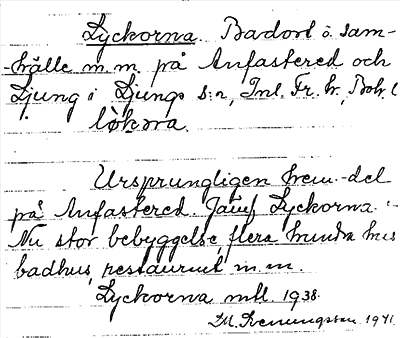 Lyckorna. Badort o. sam-
hälle m.m. på Anfastered och
Ljung i Ljungs s:n, Inl. Fr. hr, Boh. l
Ursprungligen hem.-del
på Anfastered. Jämf Lyckorna
Nu stor bebyggelse, flera hundra hus
badhus, restaurant m.m.
Lyckorna mtl. 1938.
1941.